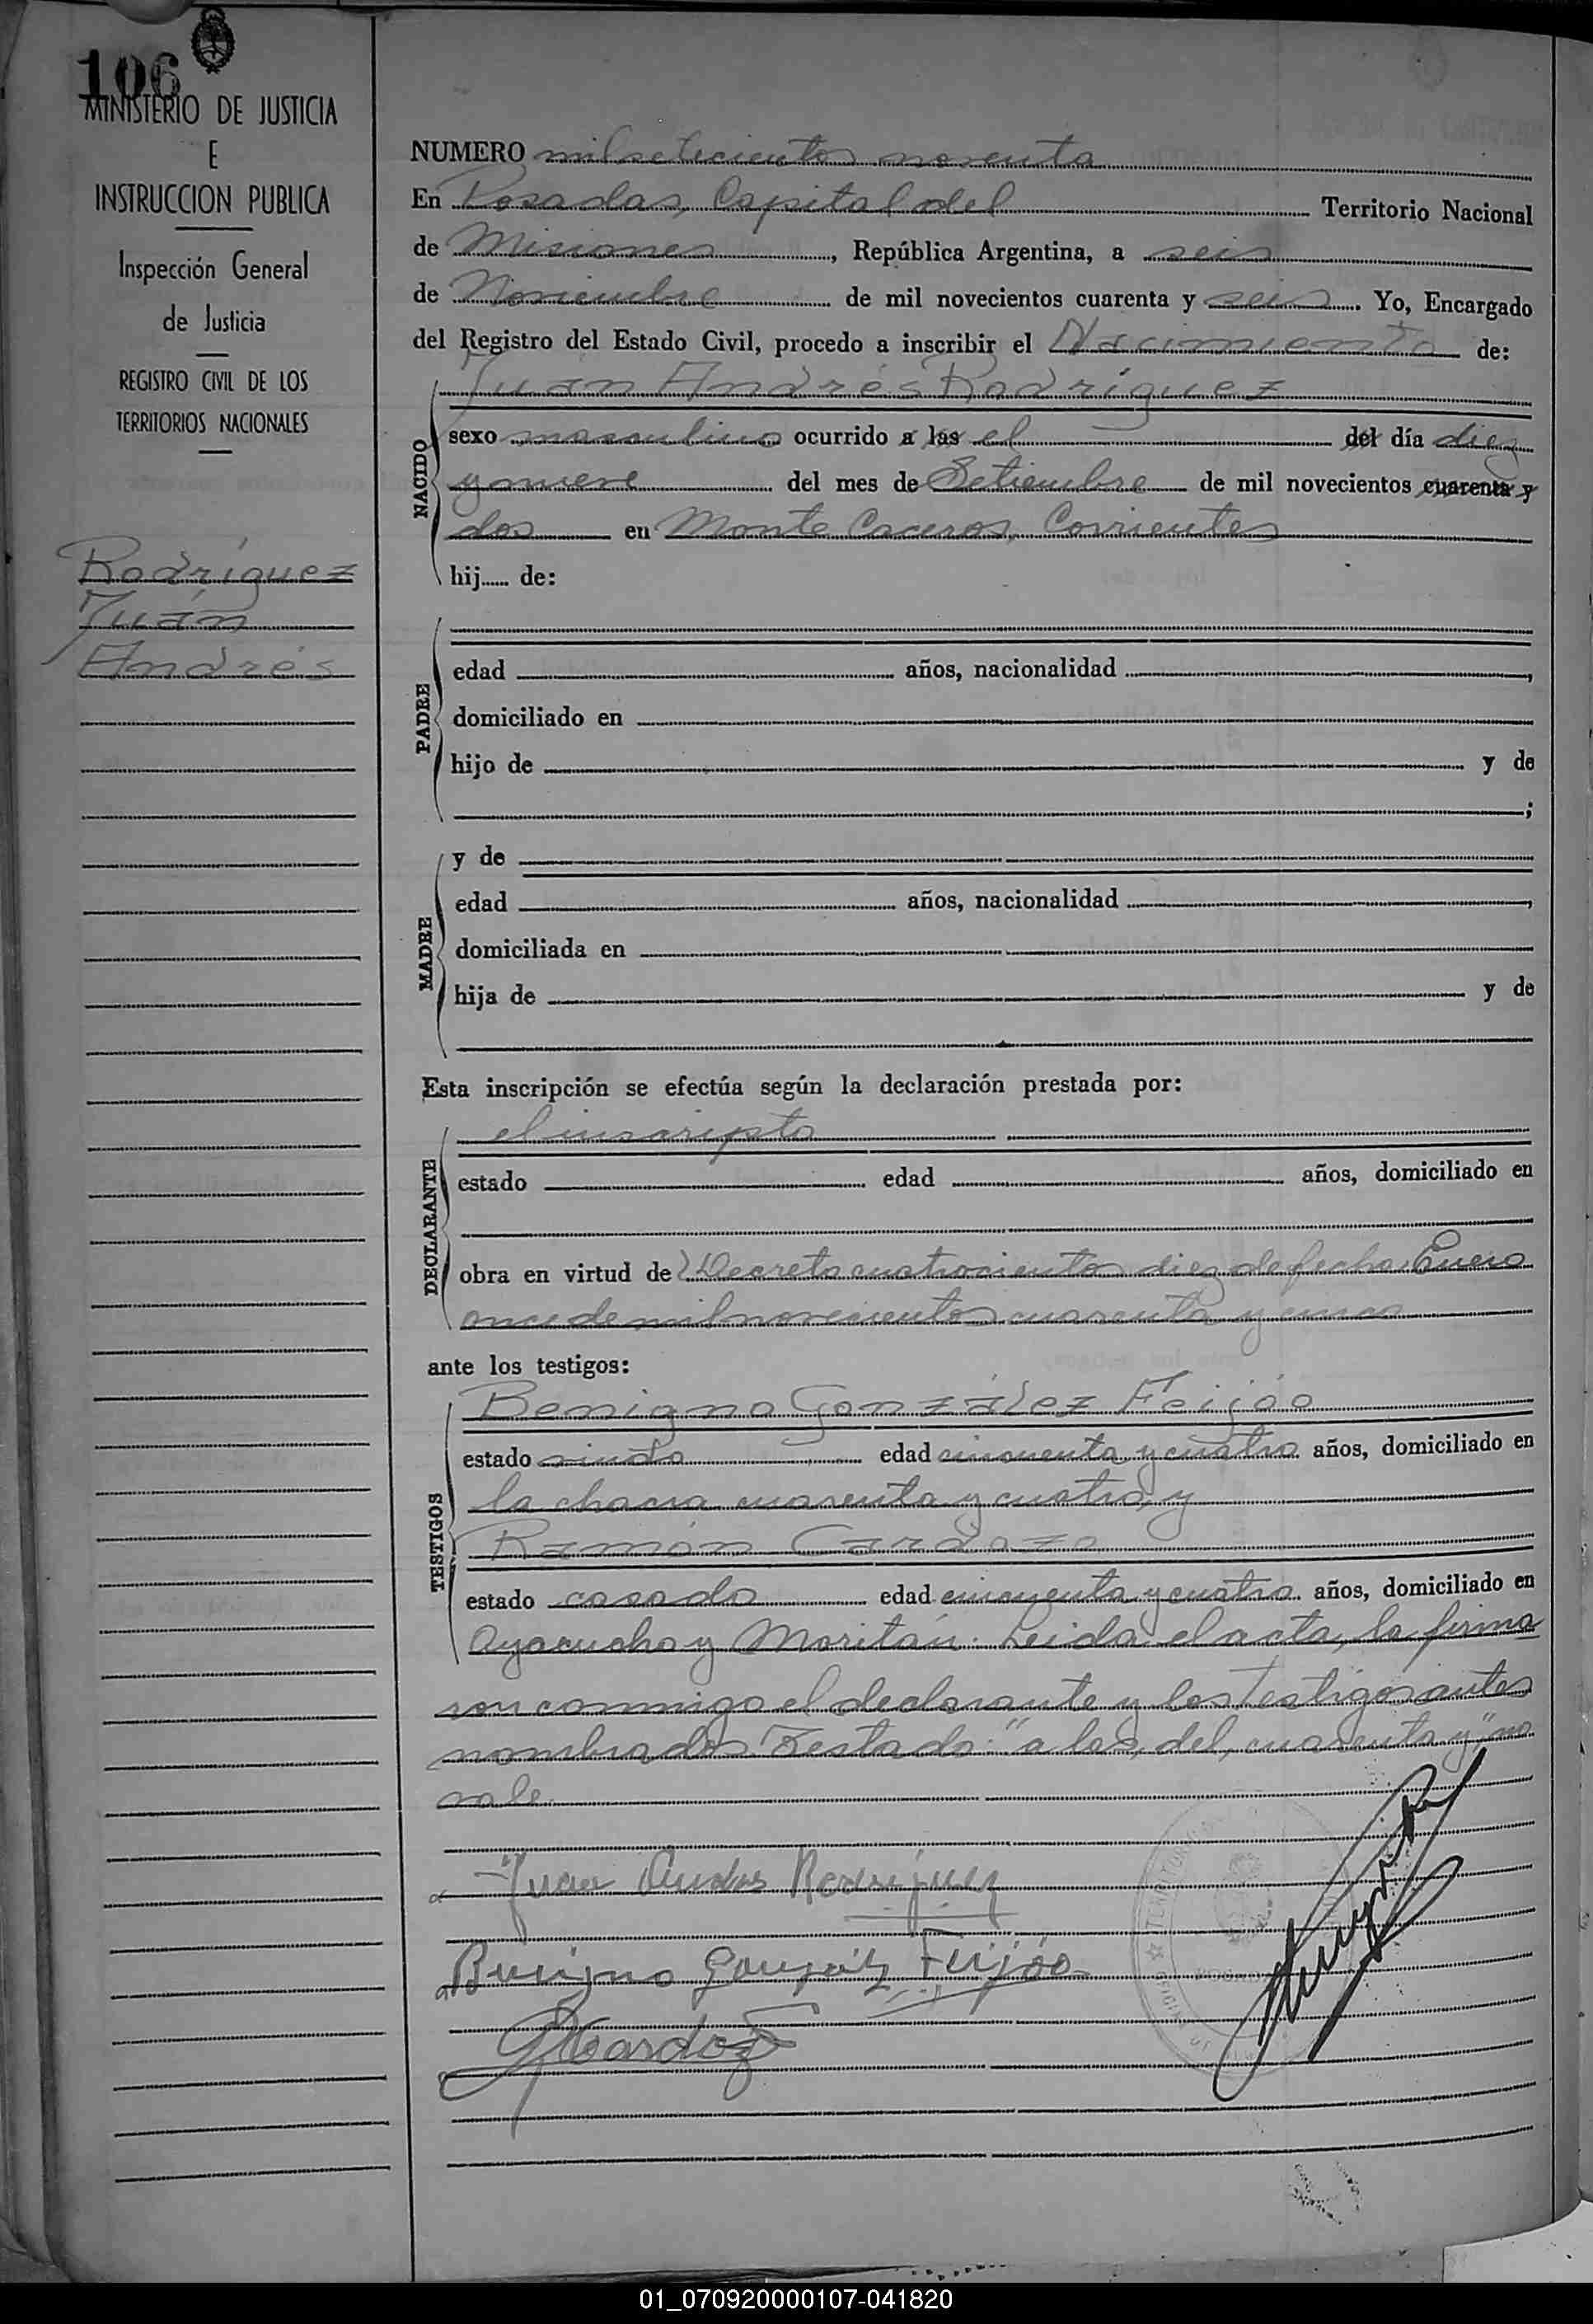 106
MINISTERIO DE JUSTICIA
E
INSTRUCCION PUBLICA
Inspección General
de Justicia
REGISTRO CIVIL DE LOS
TERRITORIOS NACIONALES
Rodríguez
Juan
Andrés
NUMERO mil setecientos noventa
En Posadas, Capital del Territorio Nacional
de Misiones, República Argentina, a seis
de Noviembre de mil novecientos cuarenta y seis. Yo, Encargado
del Registro del Estado Civil, procedo a inscribir el Nacimiento de:
Juan Andrés Rodríguez
NACIDO
sexo masculino ocurrido a las el del día diez
y nueve del mes de Setiembre de mil novecientos cuarenta y
dos en Monte Caceros, Corrientes
hij...... de:
PADRE
edad años, nacionalidad ,
domiciliado en
hijo de y de
;
MADRE
y de
edad años, nacionalidad ,
domiciliada en
hija de y de
Esta inscripción se efectúa según la declaración prestada por:
DECLARANTE
el inscripto
estado edad años, domiciliado en
obra en virtud de Decreto cuatrocientos diez de fecha Enero
once de mil novecientos cuarenta y cinco
ante los testigos:
TESTIGOS
Benigno González Feijóo
estado viudo edad cincuenta y cuatro años, domiciliado en
la chacra cuarenta y cuatro, y
Ramón Cardozo
estado casado edad cincuenta y cuatro años, domiciliado en
Ayacucho y Moritán. Leida el acta, la firma
ron conmigo el declarante y los testigos antes
nombrados. Testado: "a las, del, cuarenta y", no
vale.
Juan Andres Rodriguez
Benigno González Feijóo
Cardozo
01_070920000107-041820